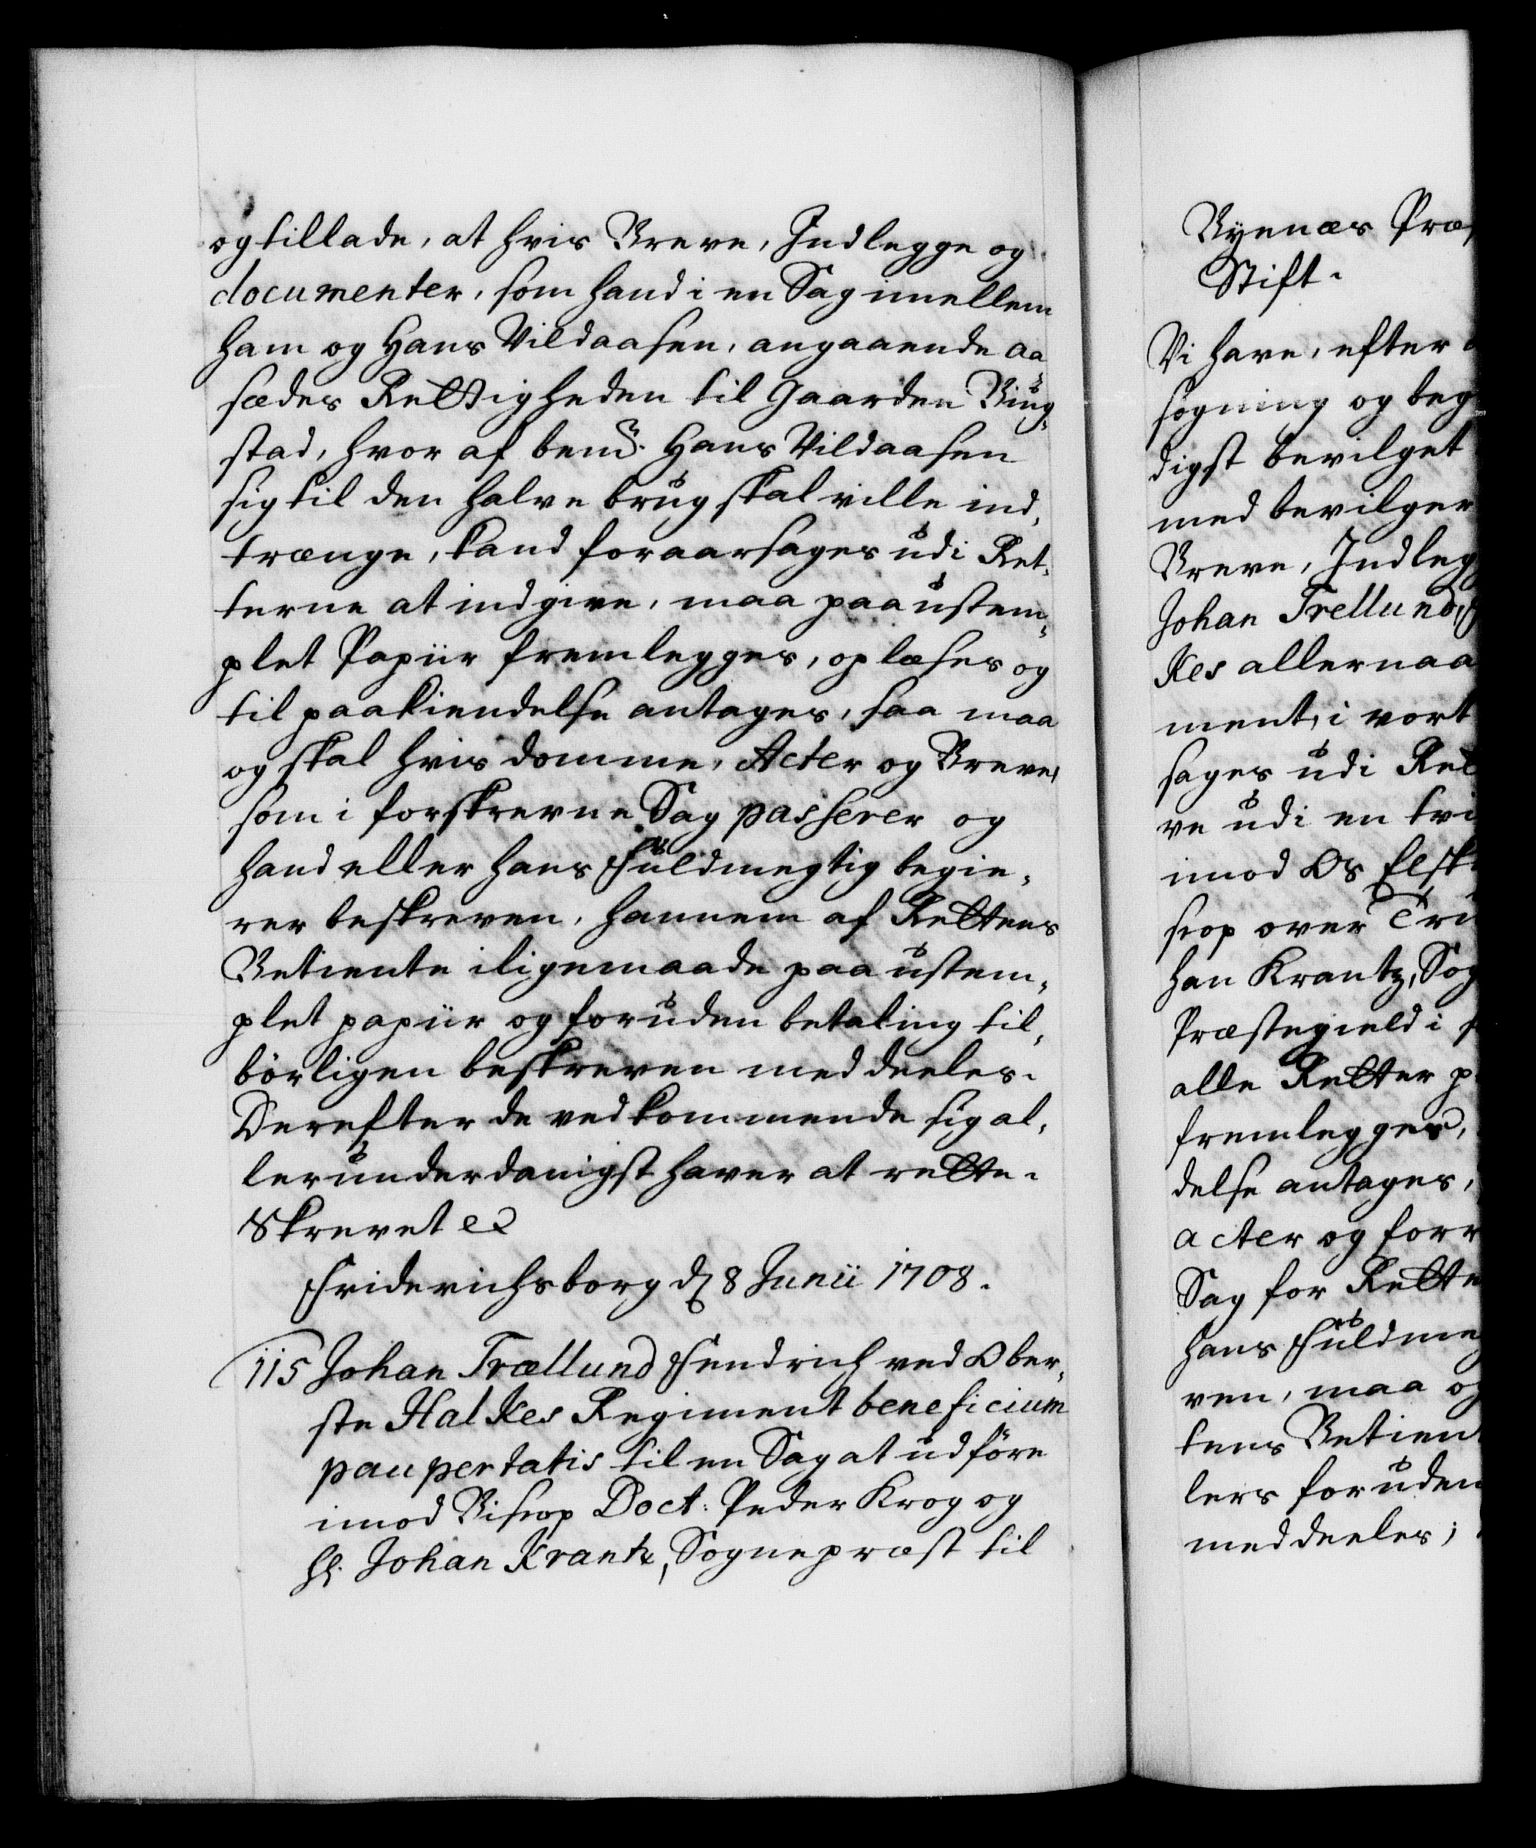 og tillade, at hvis Breve, Indlegge og
documenter, som hand i en Sag imellem
ham og Hans Vildaasen, angaaende aa¬
sædes Rettigheden til Gaarden Ring¬
stad, hvor af bemt. Hans Vildaasen
sig til den halve brug skal ville ind¬
trænge, kand foraarsages udi Ret¬
terne at indgive, maa paa ustem¬
plet Papiir fremlegges, oplæses og
til paakiendelse antages, saa maa
og skal hvis domme, Acter og Breve,
som i forskrevne Sag passerer og
hand eller hans Fuldmegtig begie¬
rer beskreven, hannem af Rettens
Betiente iligemaade paa ustem¬
plet papiir og foruden betaling til¬
børligen beskreven meddeeles.
Derefter de vedkommende sig al¬
lerunderdanigst haver at rette.
Skrevet ec
Friderichsborg d 8 Junii 1708.
115 Johan Trællund Fendrich ved Ober¬
ste Halkes Regiment beneficium
paupertatis til en Sag at udføre
imod Biscop Doct: Peder Krog og
Hr. Johan Krantz, Sognepræst til
Bynæs Præ
Stift.
Vi have, efter
søgning og beg
digst bevilget
med bevilger
Breve, Indleg
Johan Trellund,
kes allernaa
ment, i vort
sages udi Ret
ve udi en tvi
imod Os Elsk
scop over Tru
han Krantz, Sog
Præstegield i
alle Retter p
fremlegges,
delse antages,
acter og forr
Sag for Rette
hans Fuldme
ven, maa og
tens Betient
lers foruden
meddeeles;